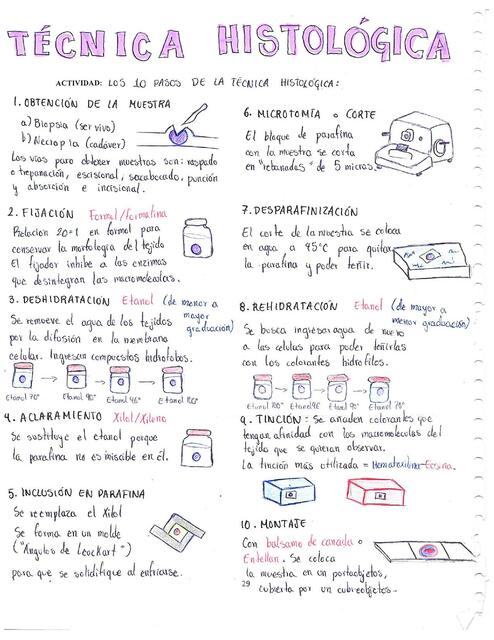 TÉCNICA HISTOLÓGICA
ACTIVIDAD: LOS 10 PASOS DE LA TÉCNICA HISTOLÓGICA:
1. OBTENCIÓN DE LA MUESTRA
a) Biopsia (ser vivo)
b) Necropsia (cadáver)
Las vías para obtener muestras son: raspado
o trepanación, escisional, sacabocado, punción
y absorción e incisional.
2. FIJACIÓN Formol/formalina
Relación 20=1 en formol para
conservar la morfología del tejido
El fijador inhibe a las enzimas
que desintegran las macromoléculas.
3. DESHIDRATACIÓN Etanol (de menor a
mayor
graduación)
Se remueve el agua de los tejidos
por la difusión en la membrana
celular. Ingresan compuestos hidrófobos.
Etanol 70° Etanol 90° Etanol 96° Etanol 100°
4. ACLARAMIENTO Xilol/Xileno
Se sustituye el etanol porque
la parafina no es miscible en él.
5. INCLUSIÓN EN PARAFINA
Se reemplaza el Xilol
Se forma en un molde
("Angulos de Leuckart")
para que se solidifique al enfriarse.
6. MICROTOMÍA o CORTE
El bloque de parafina
con la muestra se corta
en "rebanadas" de 5 micras.
7. DESPARAFINIZACIÓN
El corte de la muestra se coloca
en agua a 45°C para quitar
la parafina y poder teñir.
8. REHIDRATACIÓN Etanol (de mayor a
menor graduación)
Se busca ingresar agua de nuevo
a las células para poder teñirlas
con los colorantes hidrófilos.
Etanol 100° Etanol 96 Etanol 90° Etanol 70°
9. TINCIÓN: Se añaden colorantes que
tengan afinidad con las macromoléculas del
tejido que se quieran observar.
La tinción más utilizada = Hematoxilina-Eosina.
10. MONTAJE
Con bálsamo de canadá o
Entellan. Se coloca
la muestra en un portaobjetos,
29
cubierta por un cubreobjetos.